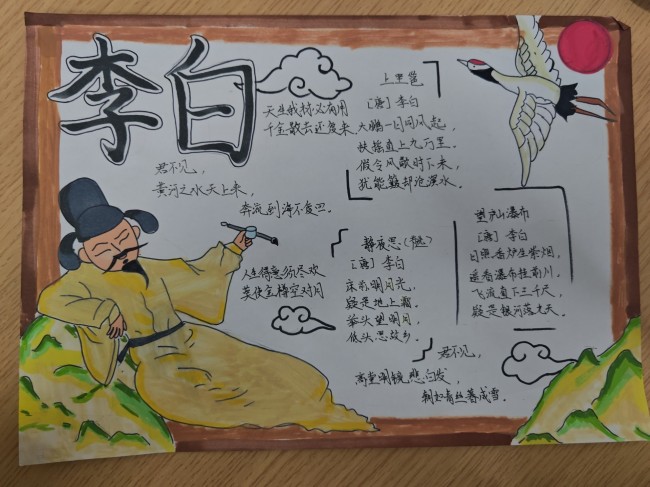 李白
天生我材必有用
千金散去还复来
君不见，
黄河之水天上来，
奔流到海不复回。
上李邕
[唐] 李白
大鹏一日同风起，
扶摇直上九万里。
假令风歇时下来，
犹能簸却沧溟水。
人生得意须尽欢
莫使金樽空对月
静夜思
[唐] 李白
床前明月光，
疑是地上霜。
举头望明月，
低头思故乡。
望庐山瀑布
[唐] 李白
日照香炉生紫烟，
遥看瀑布挂前川，
飞流直下三千尺，
疑是银河落九天。
君不见，
高堂明镜悲白发，
朝如青丝暮成雪。